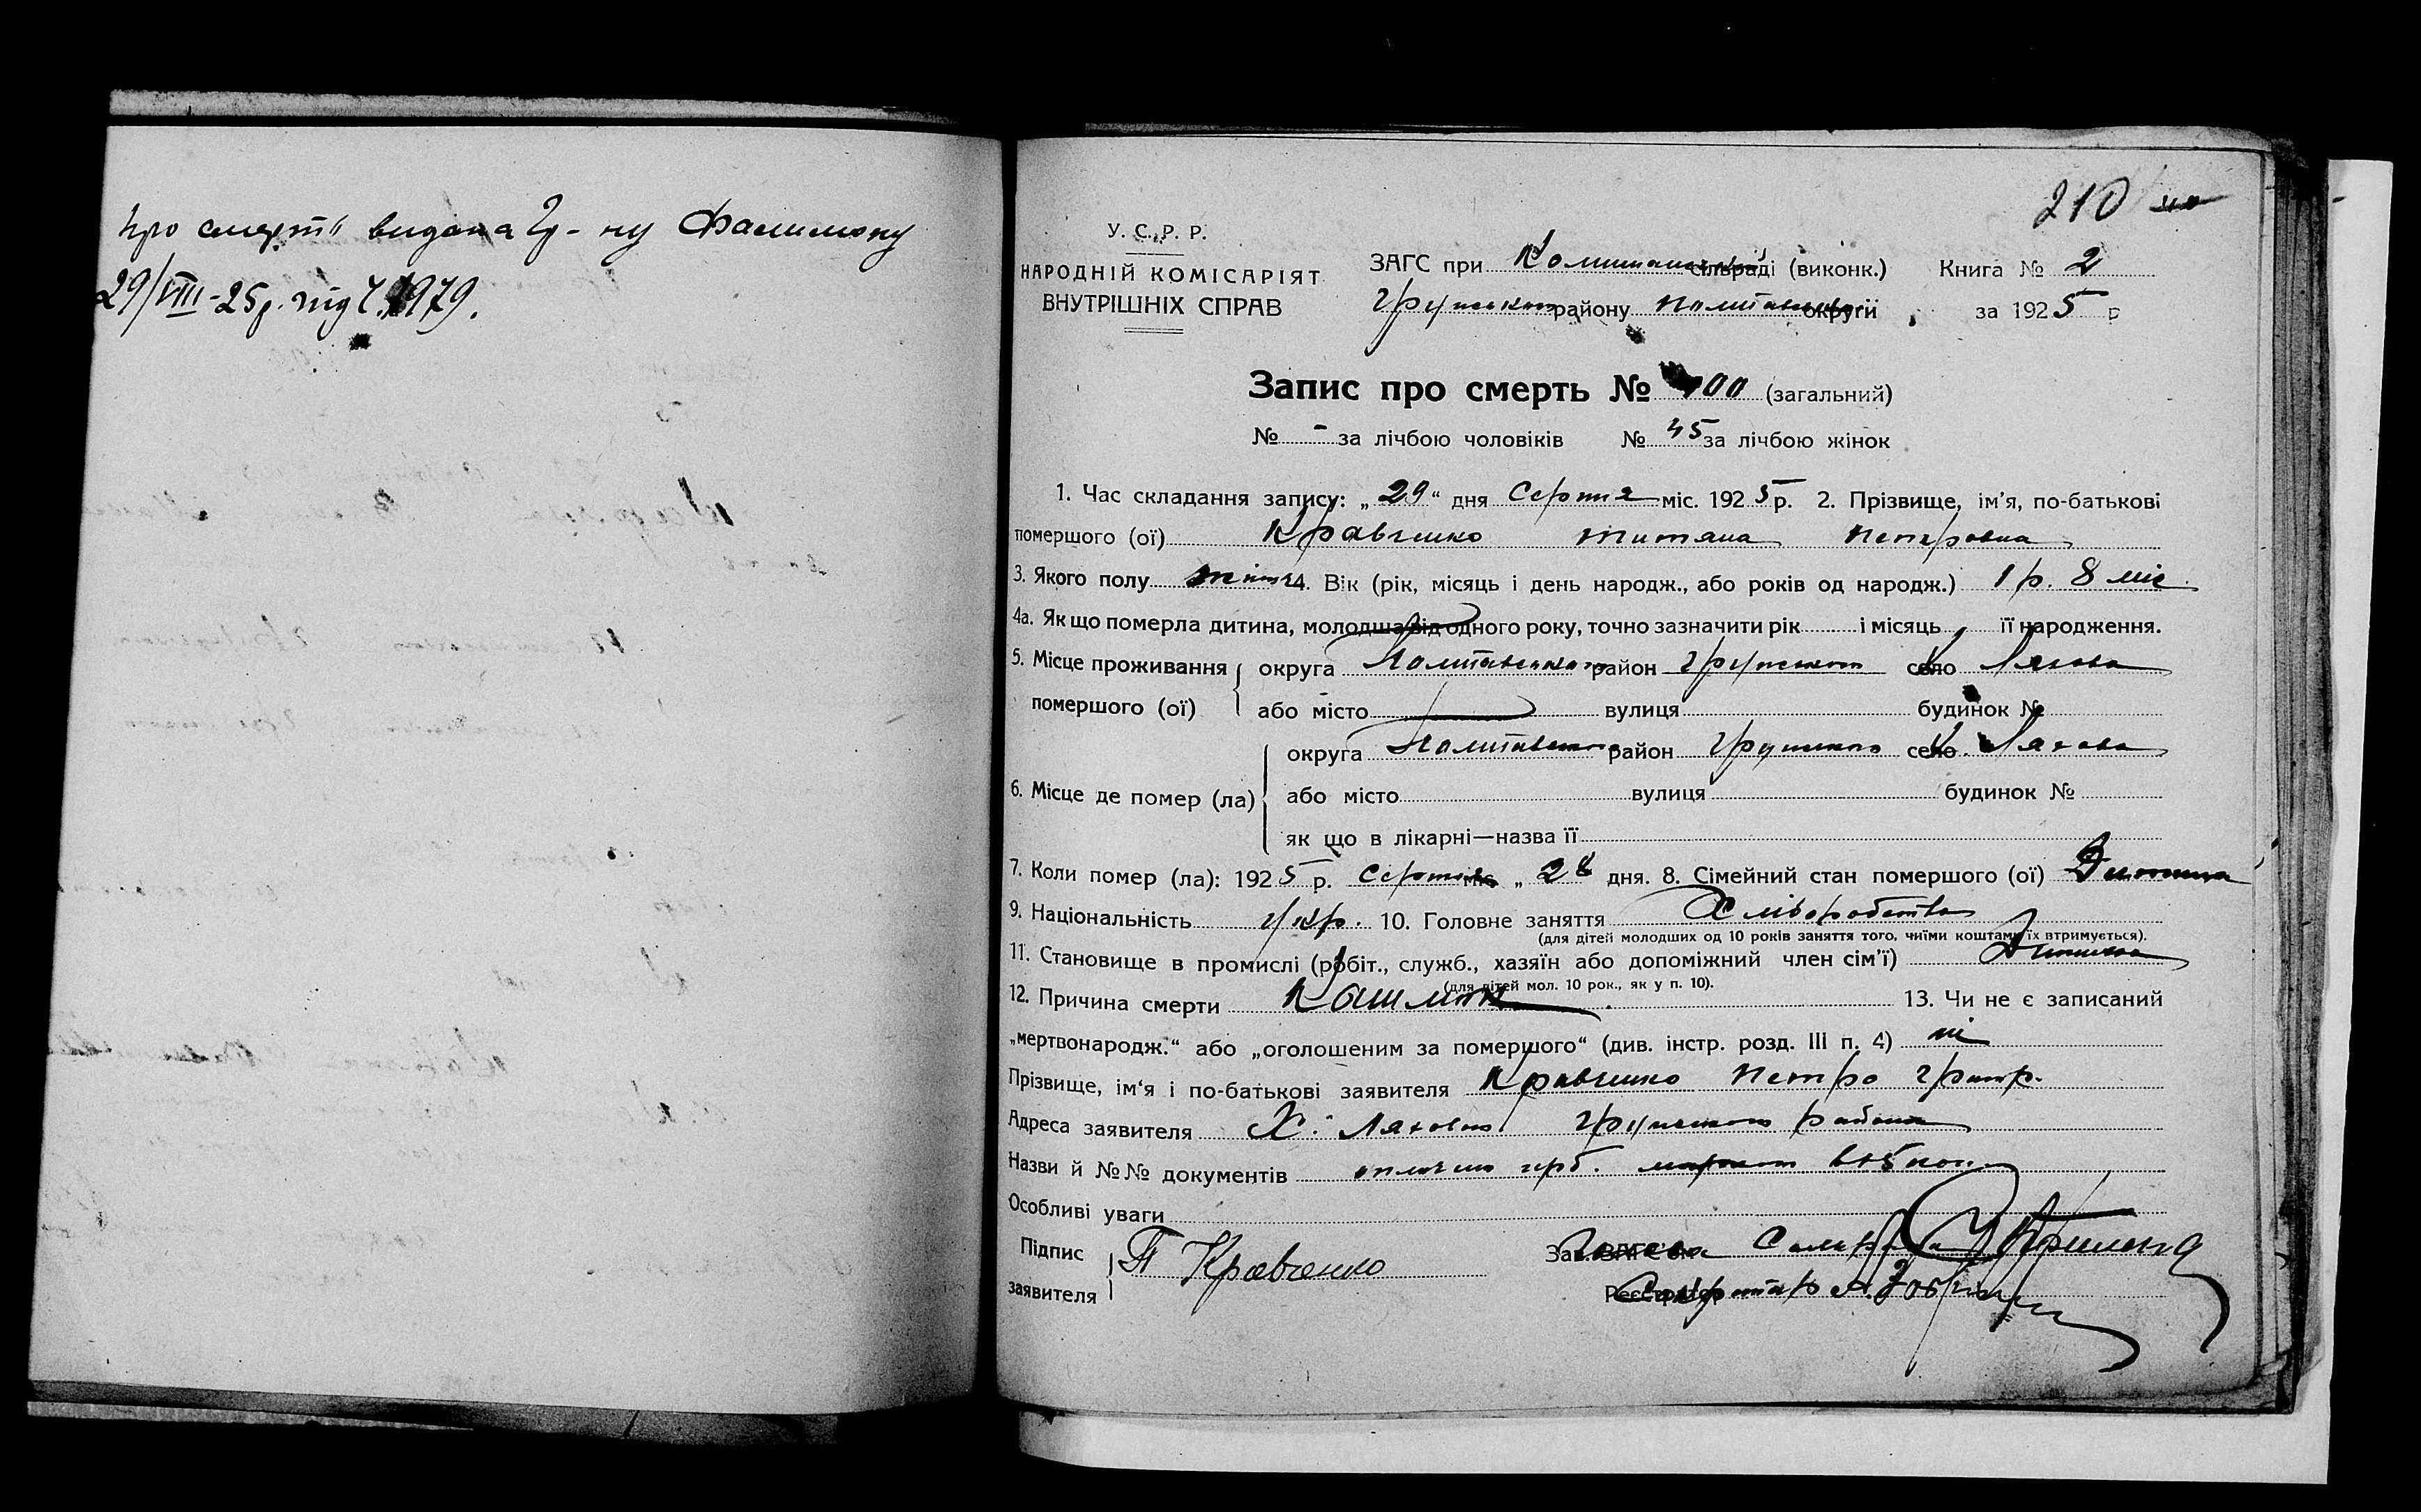 про смерть видана гр-ну Фалимону
29/VIII-25р. під ч. 1979.
210
У. С. Р. Р.
НАРОДНІЙ КОМІСАРІЯТ
ВНУТРІШНІХ СПРАВ
ЗАГС при сільраді (виконк.) Книга № 2
Грунського району Полтавської округи за 1925 р
Запис про смерть № 100 (загальний)
№ - за лічбою чоловіків № 45 за лічбою жінок
1. Час складання запису: „29“ дня Серпня міс. 1925 р. 2. Прізвище, ім’я, по-батькові
помершого (ої) Кравченко Титяна Петровна
3. Якого полу жіноч 4. Вік (рік, місяць і день народж., або років од народж.) 1 р. 8 міс
4а. Як що померла дитина, молодша від одного року, точно зазначити рік і місяць її народження.
5. Місце проживання округа Полтавського район Грунського село Ляхова
помершого (ої) або місто вулиця будинок №
6. Місце де помер (ла) округа Полтавського район Грунського село Х. Ляхова
або місто вулиця будинок №
як що в лікарні—назва її
7. Коли помер (ла): 1925 р. Серпня міс „28 дня. 8. Сімейний стан помершого (ої) Дитина
9. Національність Укр. 10. Головне заняття Хліборобство
(для дітей молодших од 10 років заняття того, чиїми коштами їх втримується).
11. Становище в промислі (робіт., служб., хазяїн або допоміжний член сім’ї) Дитина
(для дітей мол. 10 рок., як у п. 10).
12. Причина смерти Кашлюк 13. Чи не є записаний
„мертвонародж.“ або „оголошеним за помершого“ (див. інстр. розд. III п. 4) ні
Прізвище, ім‘я і по-батькові заявителя Кравченко Петро Григр.
Адреса заявителя Х. Ляховка Грунського района
Назви й №№ документів оплачено герб.
Особливі уваги
Підпис заявителя П Кравченко
Зав. ЗАГС’ом Голова Сельради
Реєстратор Секретарь